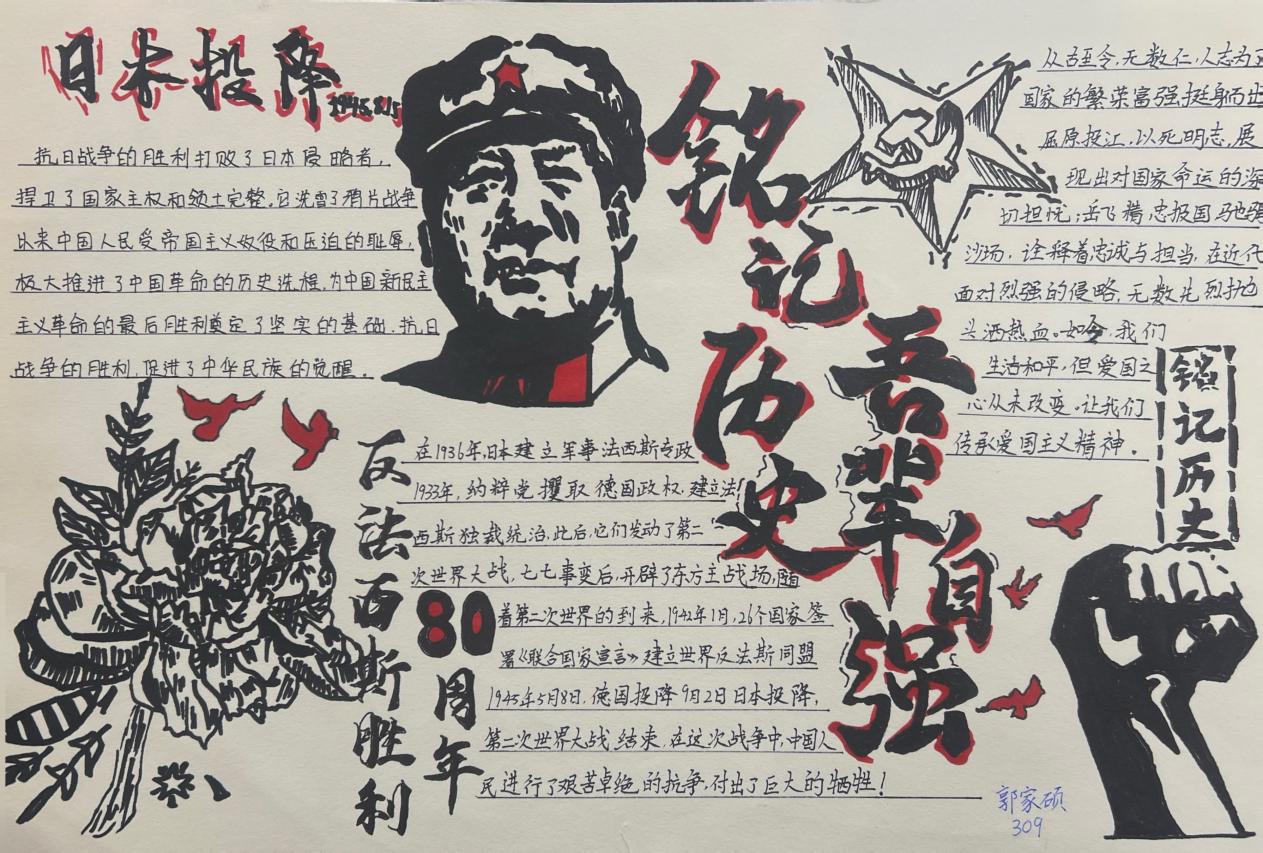 日本投降
1945.8.15
抗日战争的胜利打败了日本侵略者,
捍卫了国家主权和领土完整。它洗雪了鸦片战争
以来中国人民受帝国主义奴役和压迫的耻辱,
极大推进了中国革命的历史进程,为中国新民主
主义革命的最后胜利奠定了坚实的基础,抗日
战争的胜利,促进了中华民族的觉醒。
铭记历史
吾辈自强
从古至今,无数仁人志为了
国家的繁荣富强挺身而出
屈原投江,以死明志,展
现出对国家命运的深
切担忧;岳飞精忠报国驰骋
沙场,诠释着忠诚与担当,在近代
面对烈强的侵略,无数先烈抛
头洒热血。如今,我们
生活和平,但爱国之
心从未改变。让我们
传承爱国主义精神。
铭记历史
反法西斯胜利
80
周年
在1936年,日本建立军事法西斯专政
1933年,纳粹党攫取德国政权,建立法
西斯独裁统治,此后,它们发动了第二
次世界大战,七七事变后,开辟了东方主战场,随
着第二次世界的到来,1942年1月,26个国家签
署《联合国家宣言》建立世界反法斯同盟
1945年5月8日,德国投降9月2日日本投降,
第二次世界大战结束,在这次战争中,中国人
民进行了艰苦卓绝的抗争,付出了巨大的牺牲!
郭家硕
309